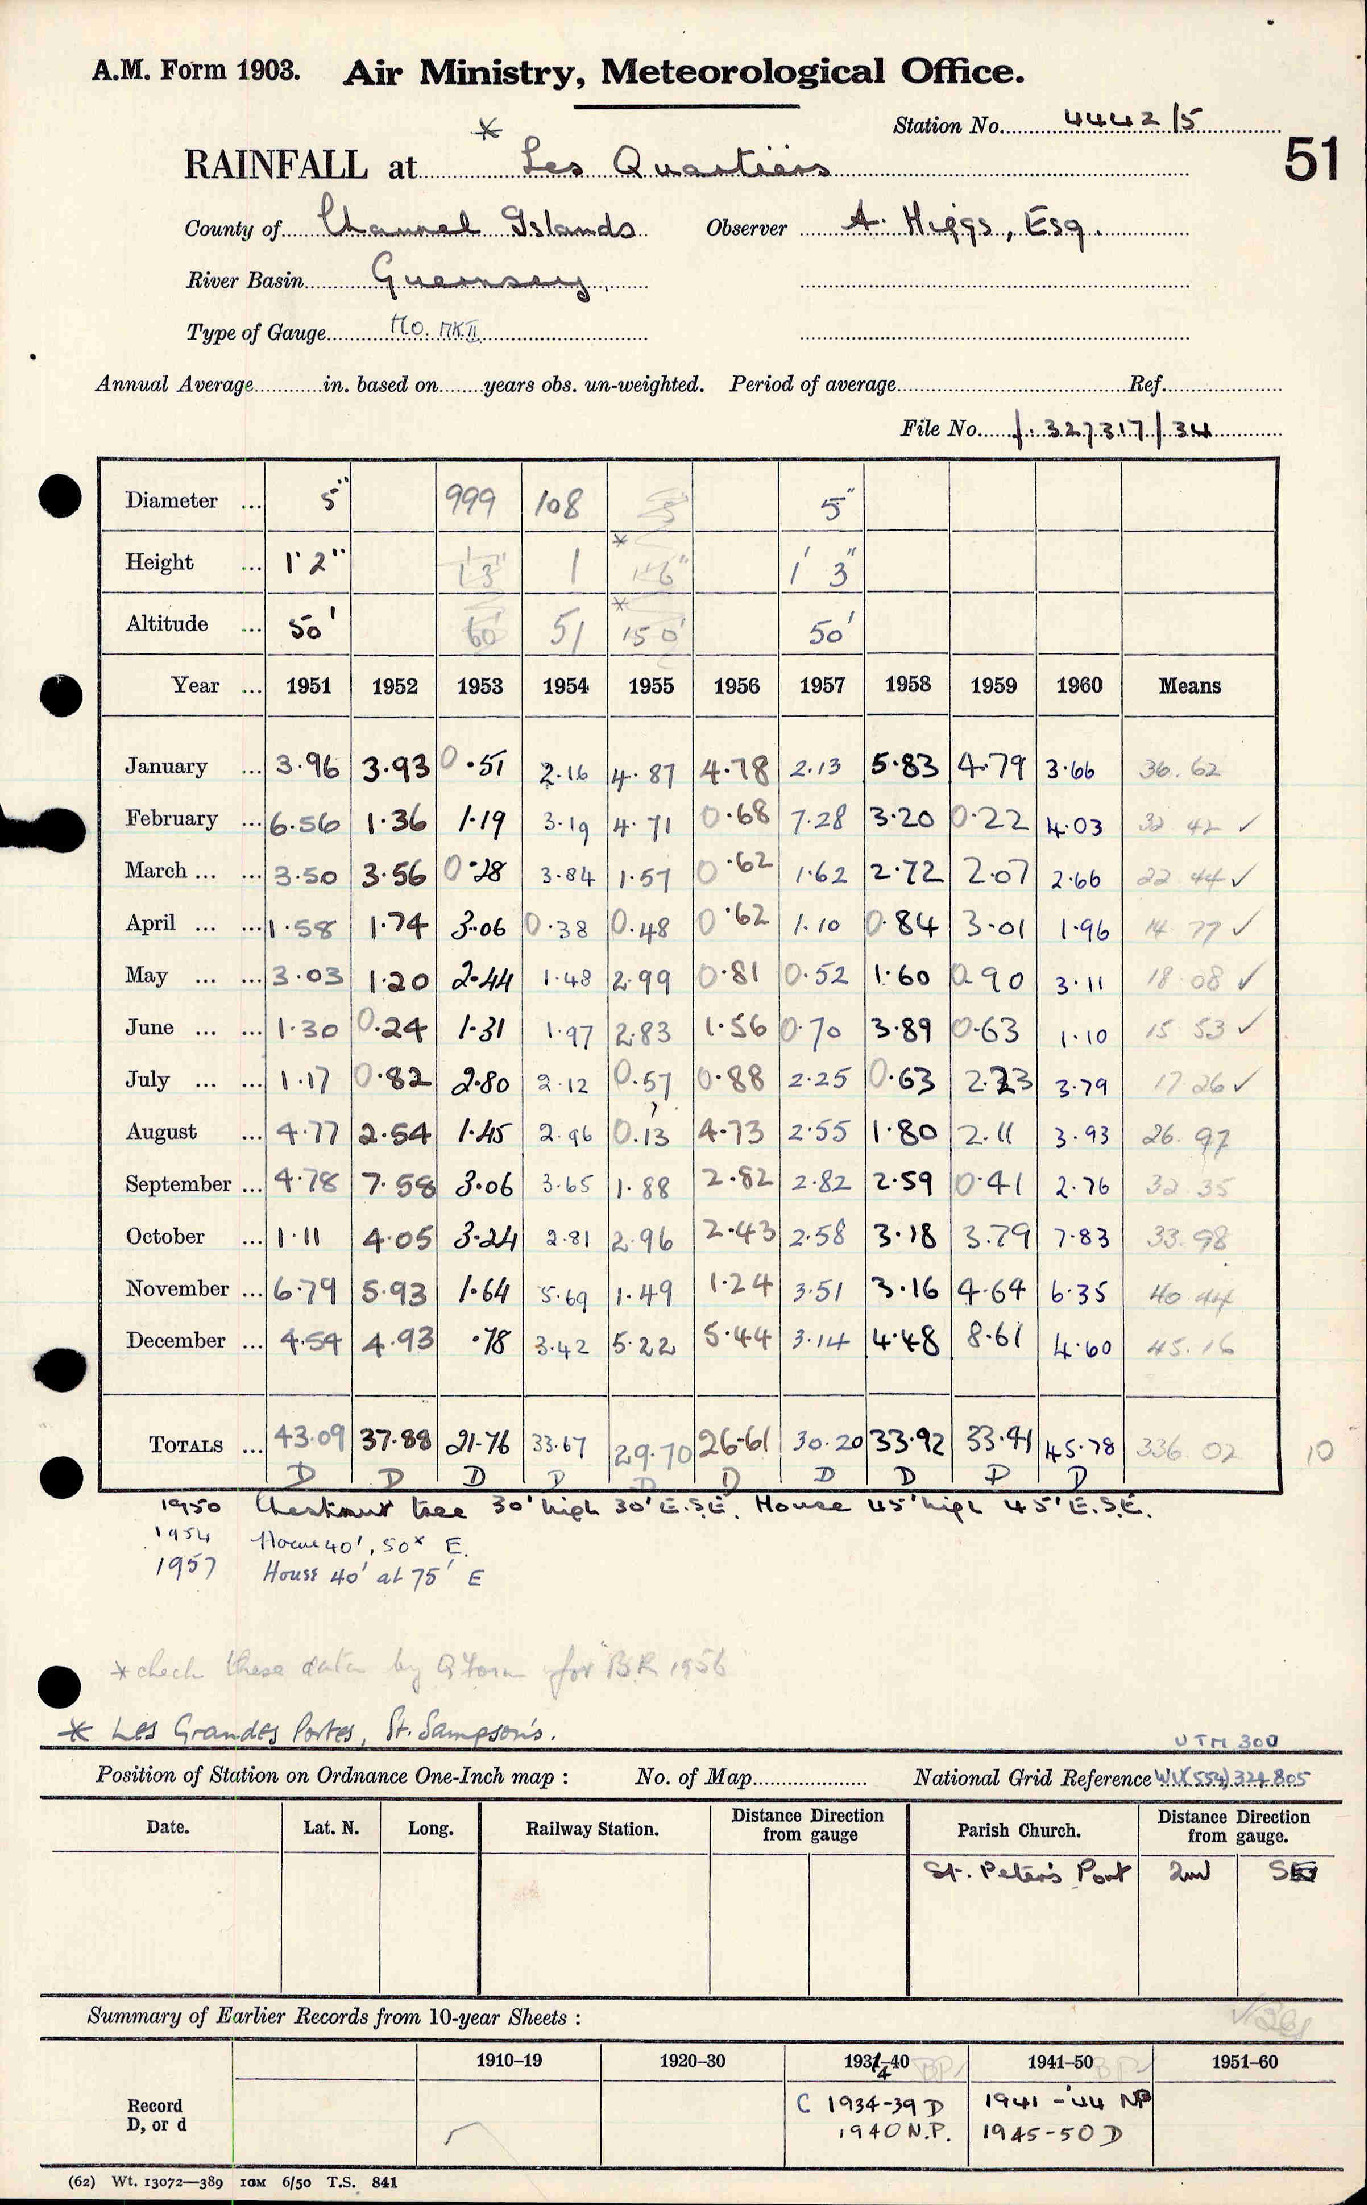 A.M. Form 1903. Air Ministry, Meteorological Office.
Station No. 4442/5
51
* RAINFALL at Les Quartiers
County of Channel Islands Observer A. Higgs, Esq.
River Basin Guernsey.
Type of Gauge MO. MK II
Annual Average in. based on years obs. un-weighted. Period of average Ref.
File No. 327317/34
Diameter ... 5" 999 108 5" 5"
Height ... 1' 2" 1 3" 1 * 1' 6" 1' 3"
Altitude ... 50' 60' 51 * 150' 50'
Year ... 1951 1952 1953 1954 1955 1956 1957 1958 1959 1960 Means
January ... 3.96 3.93 0.51 2.16 4.87 4.78 2.13 5.83 4.79 3.66 36.62
February ... 6.56 1.36 1.19 3.19 4.71 0.68 7.28 3.20 0.22 4.03 32 42 ✓
March ... ... 3.50 3.56 0.28 3.84 1.57 0.62 1.62 2.72 2.07 2.66 22 44 ✓
April ... ... 1.58 1.74 3.06 0.38 0.48 0.62 1.10 0.84 3.01 1.96 14 77 ✓
May ... ... 3.03 1.20 2.44 1.48 2.99 0.81 0.52 1.60 0.90 3.11 18 08 ✓
June ... ... 1.30 0.24 1.31 1.97 2.83 1.56 0.70 3.89 0.63 1.10 15 53 ✓
July ... ... 1.17 0.82 2.80 2.12 0.57 0.88 2.25 0.63 2.23 3.79 17 26 ✓
August ... 4.77 2.54 1.45 2.96 0.13 4.73 2.55 1.80 2.11 3.93 26.97
September ... 4.78 7.58 3.06 3.65 1.88 2.82 2.82 2.59 0.41 2.76 32 35
October ... 1.11 4.05 3.24 2.81 2.96 2.43 2.58 3.18 3.79 7.83 33.98
November ... 6.79 5.93 1.64 5.69 1.49 1.24 3.51 3.16 4.64 6.35 40 44
December ... 4.54 4.93 .78 3.42 5.22 5.44 3.14 4.48 8.61 4.60 45.16
TOTALS ... 43.09 37.88 21.76 33.67 29.70 26.61 30.20 33.92 33.41 45.78 336 02 10
D D D D D D D D D D
1950 Chestnut tree 30' high 30' E.S.E. House 45' high 45' E.S.E.
1954 House 40', 50x E.
1957 House 40' at 75' E
* check these data by Q form for B.R. 1956
* Les Grandes Portes, St. Sampson's.
UTM 300
Position of Station on Ordnance One-Inch map : No. of Map National Grid Reference WV(554) 324 805
Date. Lat. N. Long. Railway Station. Distance Direction from gauge Parish Church. Distance Direction from gauge.
St. Peter's Port 2m SE
Summary of Earlier Records from 10-year Sheets :
1910–19 1920–30 1931–40 4 BP 1941–50 BP 1951–60
Record D, or d
C 1934-39 D 1941-'44 NP
1940 N.P. 1945-50 D
(62) Wt. 13072—389 10M 6/50 T.S. 841